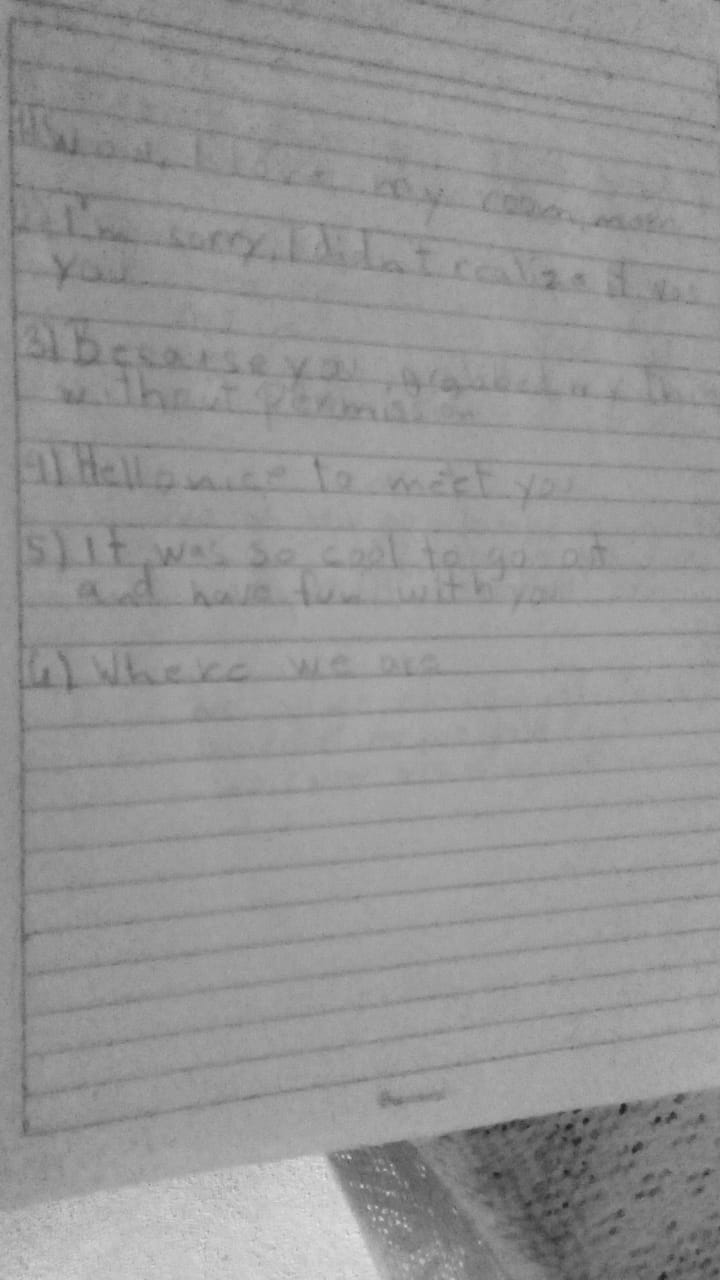 1) Wow, I love my room, mom
2) I'm sorry, I didn't realize it was
you
3) Because you grabbed my
without permission
4) Hello nice to meet you
5) It was so cool to go out
and have fun with you
6) Where we are